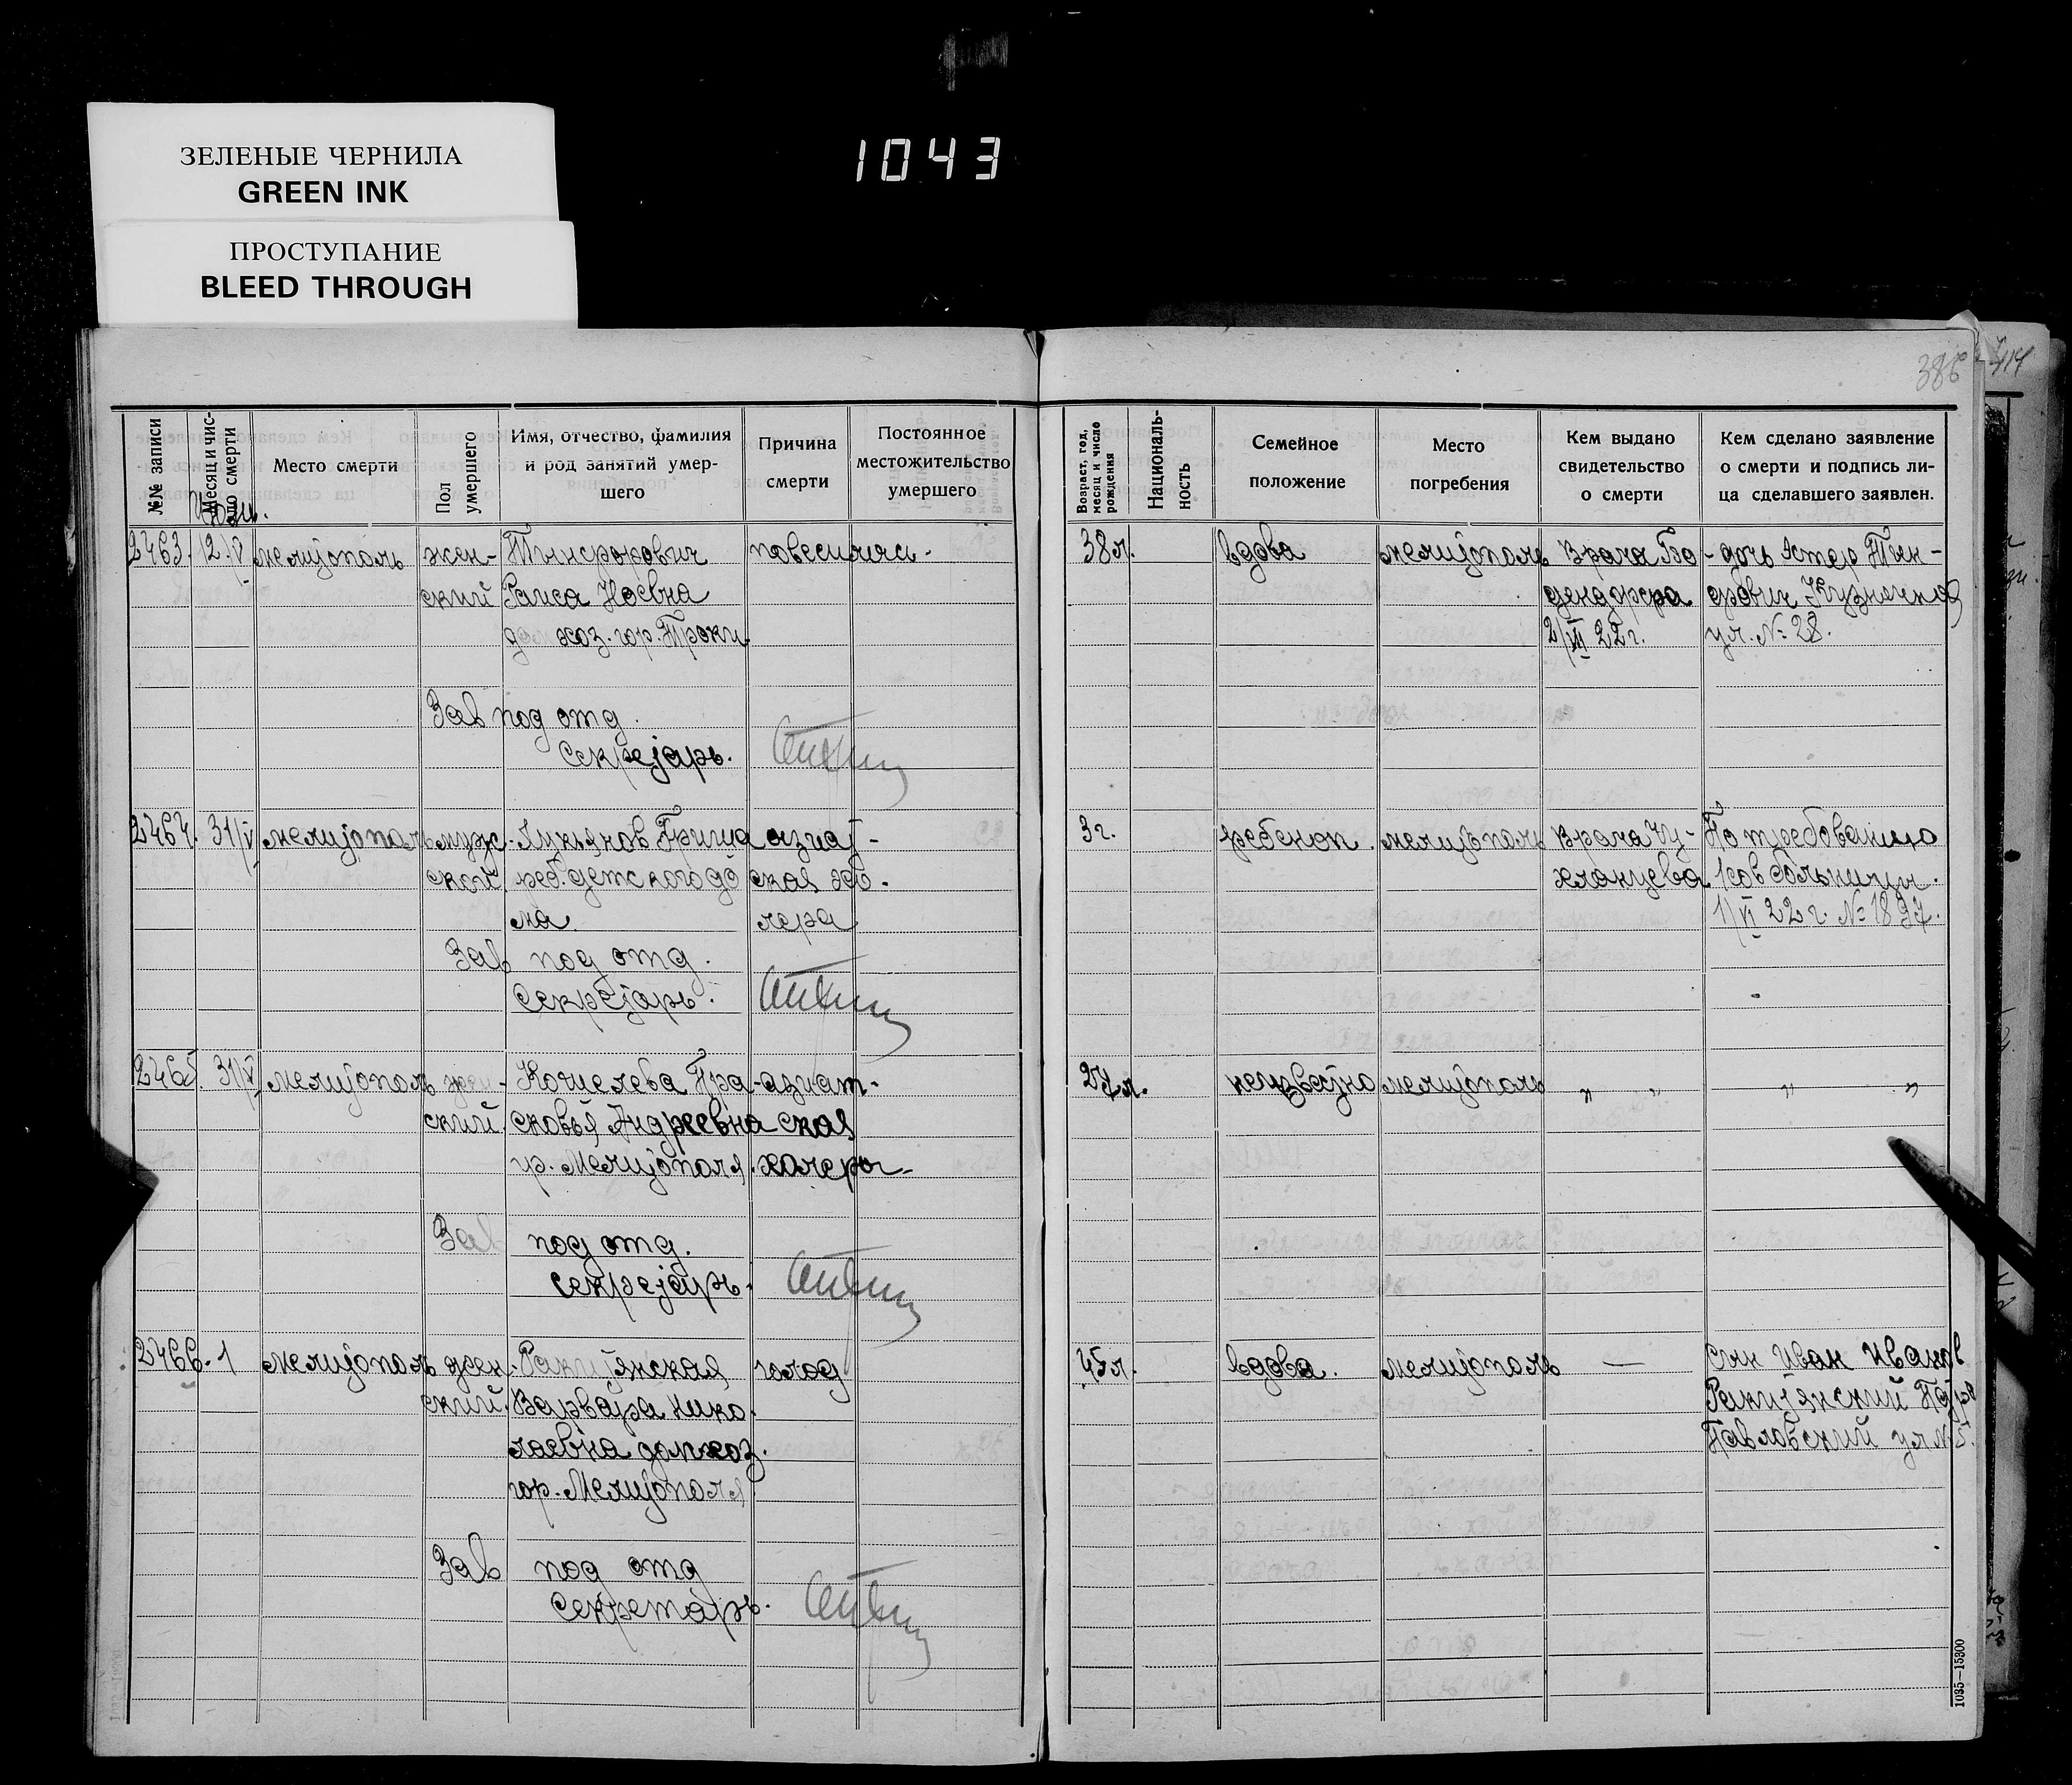 ЗЕЛЕНЫЕ ЧЕРНИЛА
GREEN INK
ПРОСТУПАНИЕ
BLEED THROUGH
1043
386
414
№№ записи
Месяц и чис-
ло смерти
Место смерти
Пол
умершего
Имя, отчество, фамилия
и род занятий умер-
шего
Причина
смерти
Постоянное
местожительство
умершего
Возраст, год,
месяц и число
рождения
Националь-
ность
Семейное
положение
Место
погребения
Кем выдано
свидетельство
о смерти
Кем сделано заявление
о смерти и подпись ли-
ца сделавшего заявлен.
2463. 12/V мелитополь жен-
ский
Раиса Ноевна
хоз. гор.
38л. вдова мелитополь врача Бо-
2/VI 22 г.
дочь Эстер Тин-
ул. № 28.
Зав под отд.
Секретарь.
2464. 31/V мелитополь муж- Лукьянов Гриша азиат-
ской реб. детского до ская хо-
ма лера
3г. ребенок мелитополь врача Чу-
По требованию
1 сов больницы
1/VI 22 г. № 1837.
Зав под отд.
Секретарь.
2465. 31/V мелитополь жен- Кочелева Пра- азиат-
ский сковья Андреевна ская
гр. Мелитополя. холера
27л. неизвестно мелитополь „ „ „ „
Зав под отд.
секретарь.
2466. 1 мелитополь жен- Ракитянская голод
ский. Варвара Нико-
лаевна домхоз.
гор. Мелитополя
45л. вдова. мелитополь —
Сын Иван Иванов
Ракитянский Петро
Павловский ул № 5.
Зав под отд
Секретарь.
1035—15300